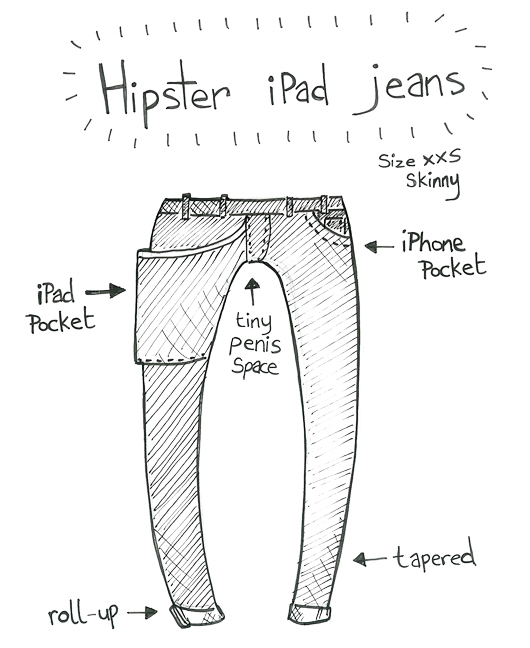 Hipster iPad jeans
Size xxs
Skinny
iPhone
Pocket
iPad
Pocket
tiny
penis
Space
tapered
roll-up